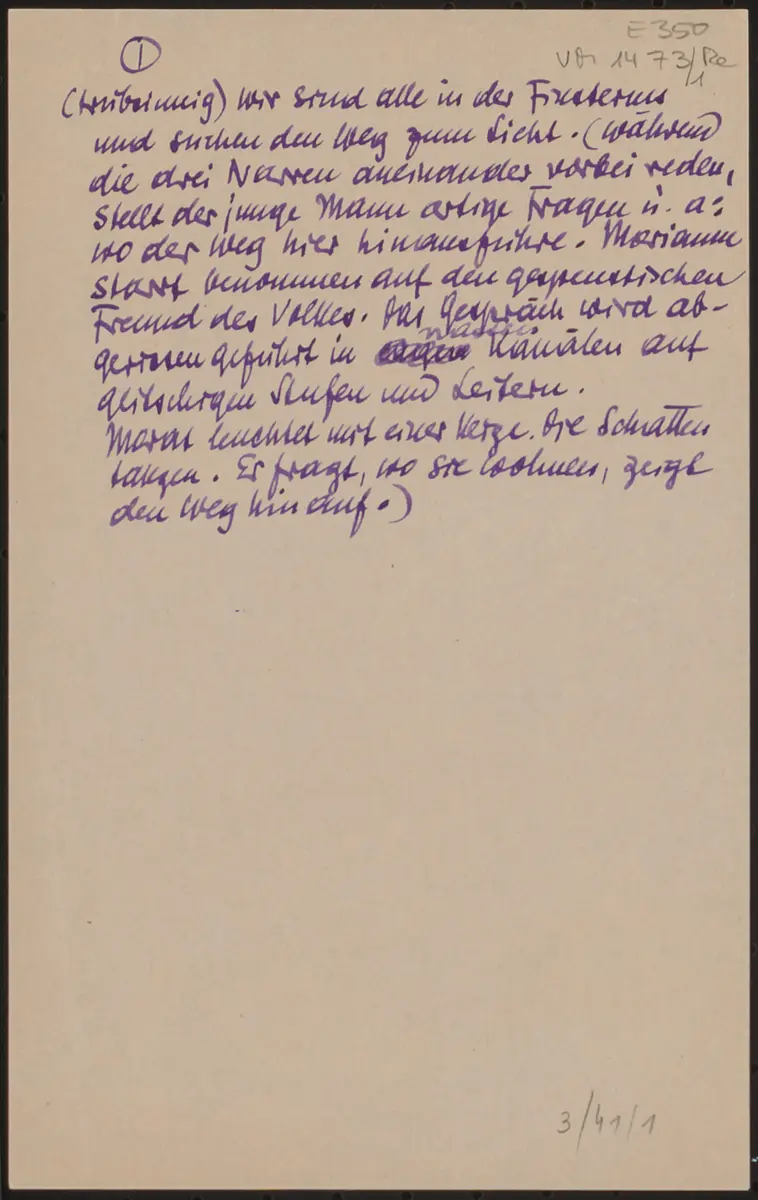 E 350
1
VA 1473/Re
1
(trübsinnig) wir sind alle in der Finsternis
und suchen den Weg zum Licht. (während
die drei Narren aneinander vorbei reden,
stellt der junge Mann artige Fragen u. a:
wo der Weg hier hinausführe. Marianne
starrt benommen auf den gespenstischen
Freund des Volkes. Das Gespräch wird ab-
nassen
gerissen geführt in Kanälen auf
glitschigen Stufen und Leitern.
Marat leuchtet mit einer Kerze. Die Schatten
tanzen. Er fragt, wo sie wohnen, zeigt
den Weg hinauf.)
3/41/1